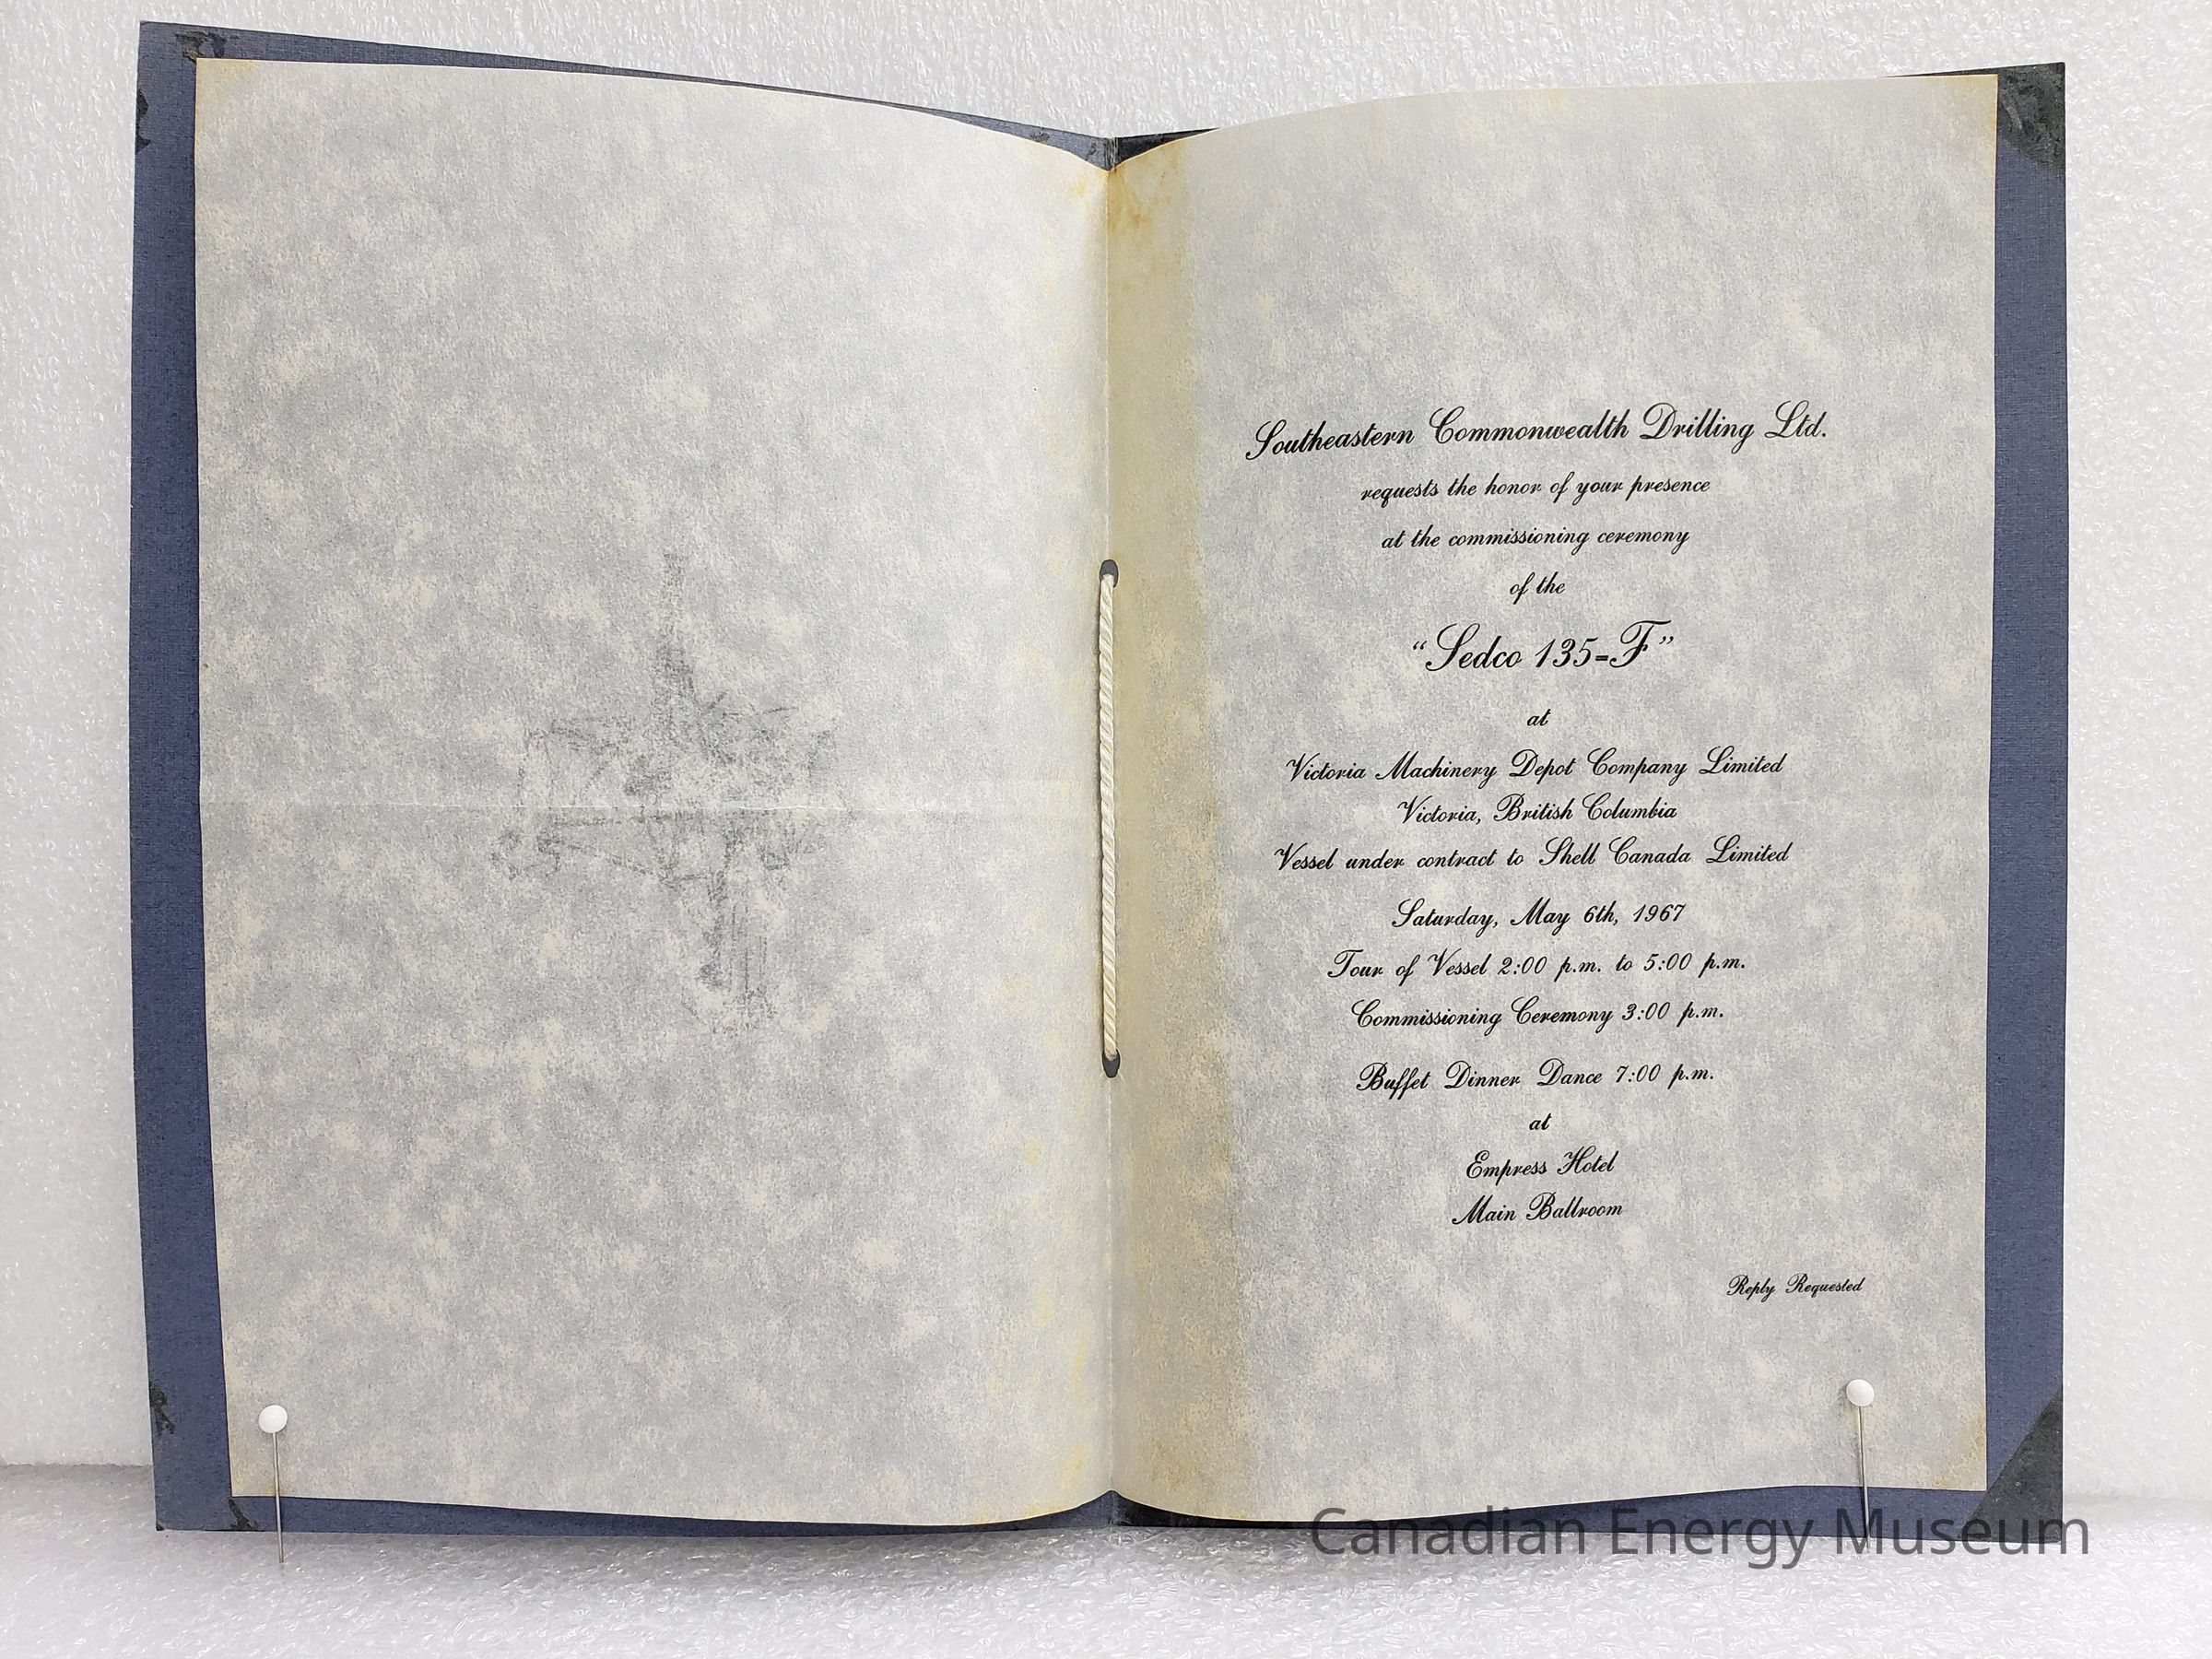 Southeastern Commonwealth Drilling Ltd.
requests the honor of your presence
at the commissioning ceremony
of the
“Sedco 135-F”
at
Victoria Machinery Depot Company Limited
Victoria, British Columbia
Vessel under contract to Shell Canada Limited
Saturday, May 6th, 1967
Tour of Vessel 2:00 p.m. to 5:00 p.m.
Commissioning Ceremony 3:00 p.m.
Buffet Dinner Dance 7:00 p.m.
at
Empress Hotel
Main Ballroom
Reply Requested
Canadian Energy Museum